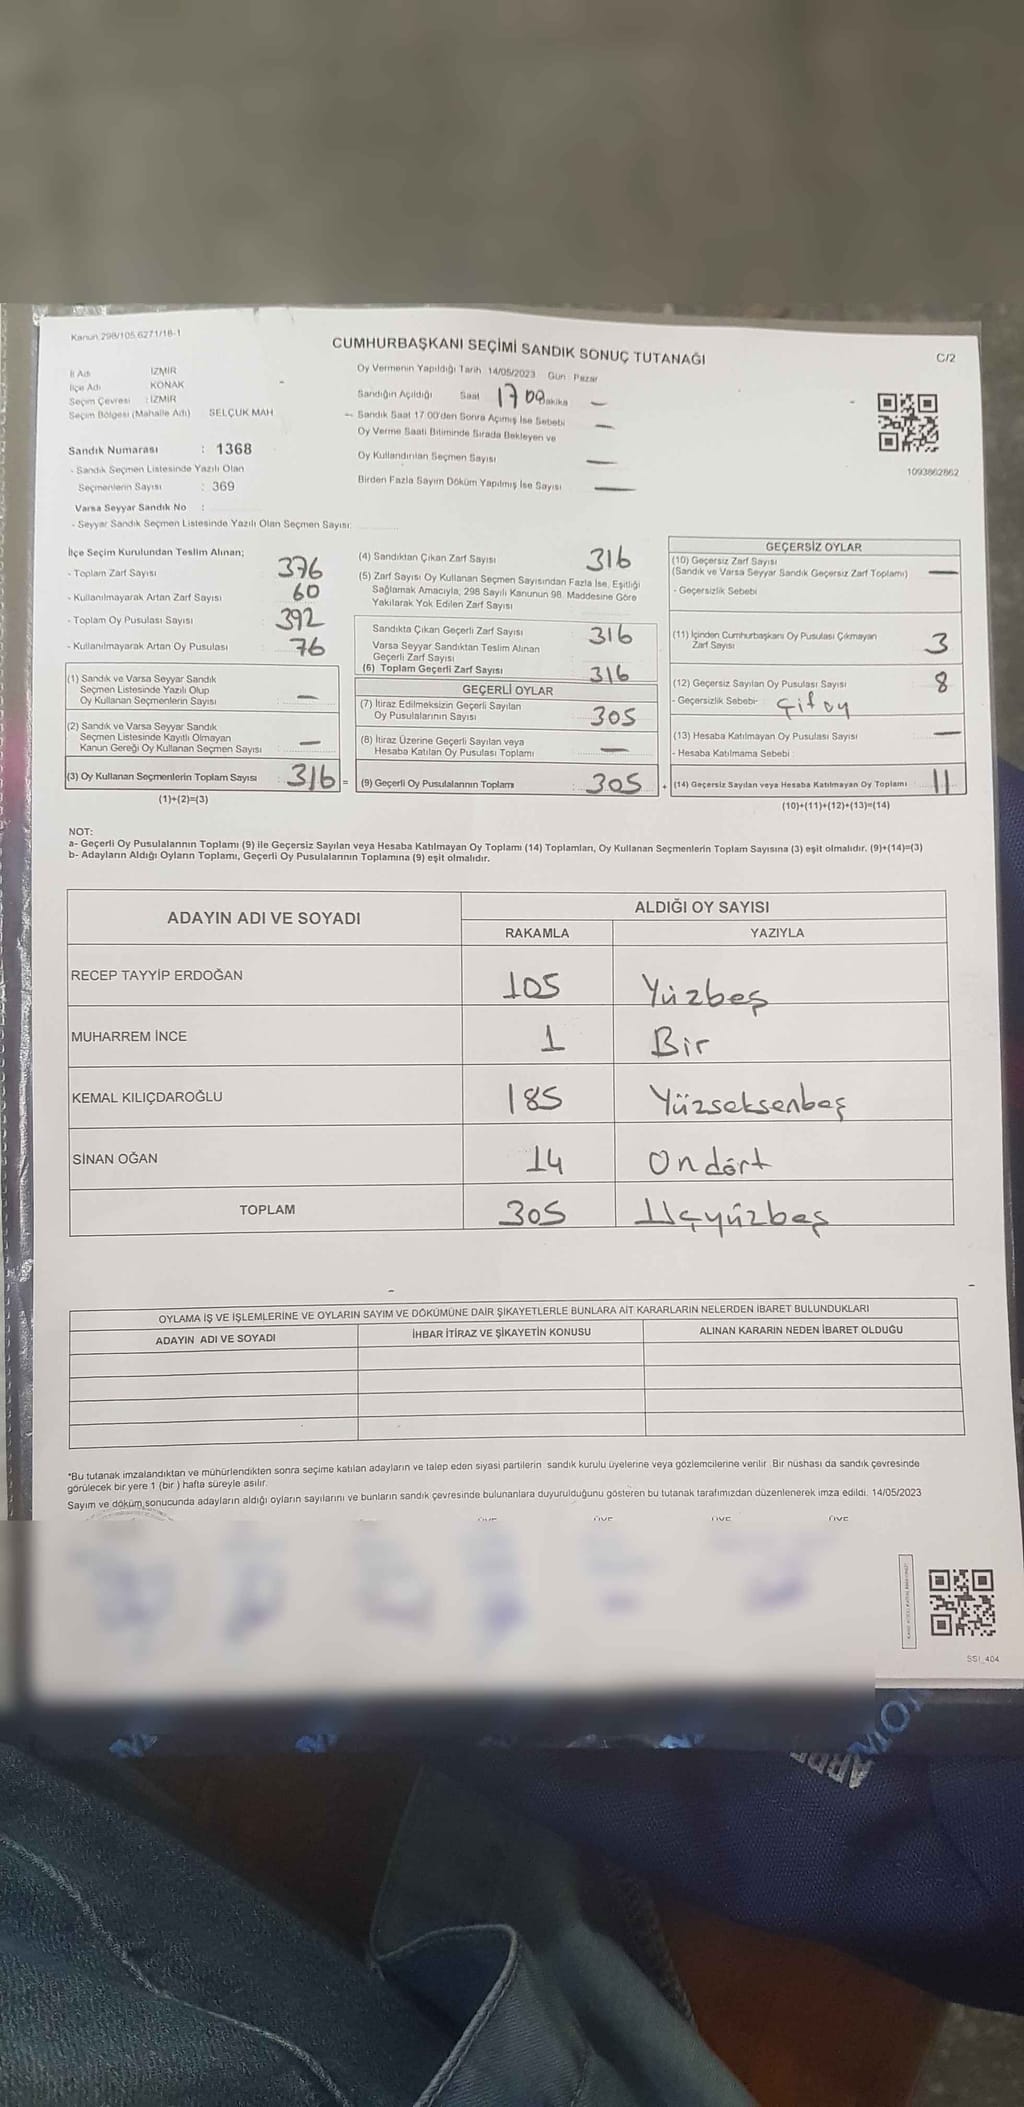 Kanun 298/105,6271/18-1
CUMHURBAŞKANI SEÇİMİ SANDIK SONUÇ TUTANAĞI
C/2
İl Adı İZMİR
İlçe Adı KONAK
Seçim Çevresi : İZMİR
Seçim Bölgesi (Mahalle Adı) : SELÇUK MAH
Oy Vermenin Yapıldığı Tarih 14/05/2023 Gün : Pazar
Sandığın Açıldığı Saat 17 00 Dakika —
Sandık Saat 17:00'den Sonra Açılmış İse Sebebi —
Oy Verme Saati Bitiminde Sırada Bekleyen ve
Oy Kullandırılan Seçmen Sayısı —
Birden Fazla Sayım Döküm Yapılmış İse Sayısı —
1093862862
Sandık Numarası : 1368
- Sandık Seçmen Listesinde Yazılı Olan
Seçmenlerin Sayısı : 369
Varsa Seyyar Sandık No :
- Seyyar Sandık Seçmen Listesinde Yazılı Olan Seçmen Sayısı:
İlçe Seçim Kurulundan Teslim Alınan;
- Toplam Zarf Sayısı 376
- Kullanılmayarak Artan Zarf Sayısı 60
- Toplam Oy Pusulası Sayısı 392
- Kullanılmayarak Artan Oy Pusulası 76
(1) Sandık ve Varsa Seyyar Sandık
Seçmen Listesinde Yazılı Olup
Oy Kullanan Seçmenlerin Sayısı —
(2) Sandık ve Varsa Seyyar Sandık
Seçmen Listesinde Kayıtlı Olmayan
Kanun Gereği Oy Kullanan Seçmen Sayısı —
(3) Oy Kullanan Seçmenlerin Toplam Sayısı 316 =
(1)+(2)=(3)
(4) Sandıktan Çıkan Zarf Sayısı 316
(5) Zarf Sayısı Oy Kullanan Seçmen Sayısından Fazla İse, Eşitliği
Sağlamak Amacıyla, 298 Sayılı Kanunun 98. Maddesine Göre
Yakılarak Yok Edilen Zarf Sayısı
Sandıkta Çıkan Geçerli Zarf Sayısı 316
Varsa Seyyar Sandıktan Teslim Alınan
Geçerli Zarf Sayısı
(6) Toplam Geçerli Zarf Sayısı 316
GEÇERLİ OYLAR
(7) İtiraz Edilmeksizin Geçerli Sayılan
Oy Pusulalarının Sayısı 305
(8) İtiraz Üzerine Geçerli Sayılan veya
Hesaba Katılan Oy Pusulası Toplamı —
(9) Geçerli Oy Pusulalarının Toplamı : 305 +
GEÇERSİZ OYLAR
(10) Geçersiz Zarf Sayısı
(Sandık ve Varsa Seyyar Sandık Geçersiz Zarf Toplamı) —
- Geçersizlik Sebebi
(11) İçinden Cumhurbaşkanı Oy Pusulası Çıkmayan
Zarf Sayısı 3
(12) Geçersiz Sayılan Oy Pusulası Sayısı 8
- Geçersizlik Sebebi- Çift oy
(13) Hesaba Katılmayan Oy Pusulası Sayısı —
- Hesaba Katılmama Sebebi :
(14) Geçersiz Sayılan veya Hesaba Katılmayan Oy Toplamı 11
(10)+(11)+(12)+(13)=(14)
NOT:
a- Geçerli Oy Pusulalarının Toplamı (9) ile Geçersiz Sayılan veya Hesaba Katılmayan Oy Toplamı (14) Toplamları, Oy Kullanan Seçmenlerin Toplam Sayısına (3) eşit olmalıdır. (9)+(14)=(3)
b- Adayların Aldığı Oyların Toplamı, Geçerli Oy Pusulalarının Toplamına (9) eşit olmalıdır.
ADAYIN ADI VE SOYADI ALDIĞI OY SAYISI
RAKAMLA YAZIYLA
RECEP TAYYİP ERDOĞAN 105 Yüzbeş
MUHARREM İNCE 1 Bir
KEMAL KILIÇDAROĞLU 185 Yüzseksenbeş
SİNAN OĞAN 14 Ondört
TOPLAM 305 Üçyüzbeş
OYLAMA İŞ VE İŞLEMLERİNE VE OYLARIN SAYIM VE DÖKÜMÜNE DAİR ŞİKAYETLERLE BUNLARA AİT KARARLARIN NELERDEN İBARET BULUNDUKLARI
ADAYIN ADI VE SOYADI İHBAR İTİRAZ VE ŞİKAYETİN KONUSU ALINAN KARARIN NEDEN İBARET OLDUĞU
*Bu tutanak imzalandıktan ve mühürlendikten sonra seçime katılan adayların ve talep eden siyasi partilerin sandık kurulu üyelerine veya gözlemcilerine verilir. Bir nüshası da sandık çevresinde
görülecek bir yere 1 (bir) hafta süreyle asılır.
Sayım ve döküm sonucunda adayların aldığı oyların sayılarını ve bunların sandık çevresinde bulunanlara duyurulduğunu gösteren bu tutanak tarafımızdan düzenlenerek imza edildi. 14/05/2023
ÜYE ÜYE ÜYE ÜYE
SSI_404